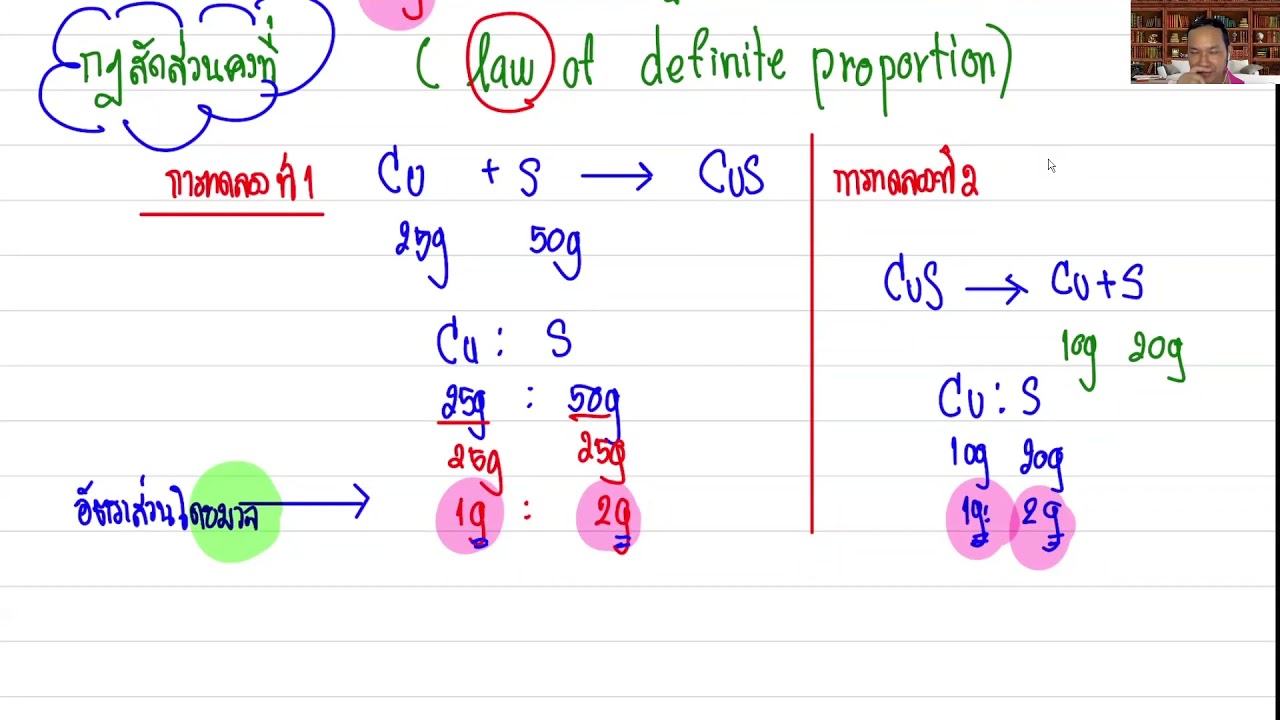 กฎสัดส่วนคงที่ (law of definite proportion)
การทดลองที่ 1 Cu + S → CuS
25g 50g
Cu : S
25g : 50g
25g 25g
อัตราส่วนโดยมวล → 1g : 2g
การทดลองที่ 2
CuS → Cu + S
10g 20g
Cu : S
10g 20g
1g : 2g